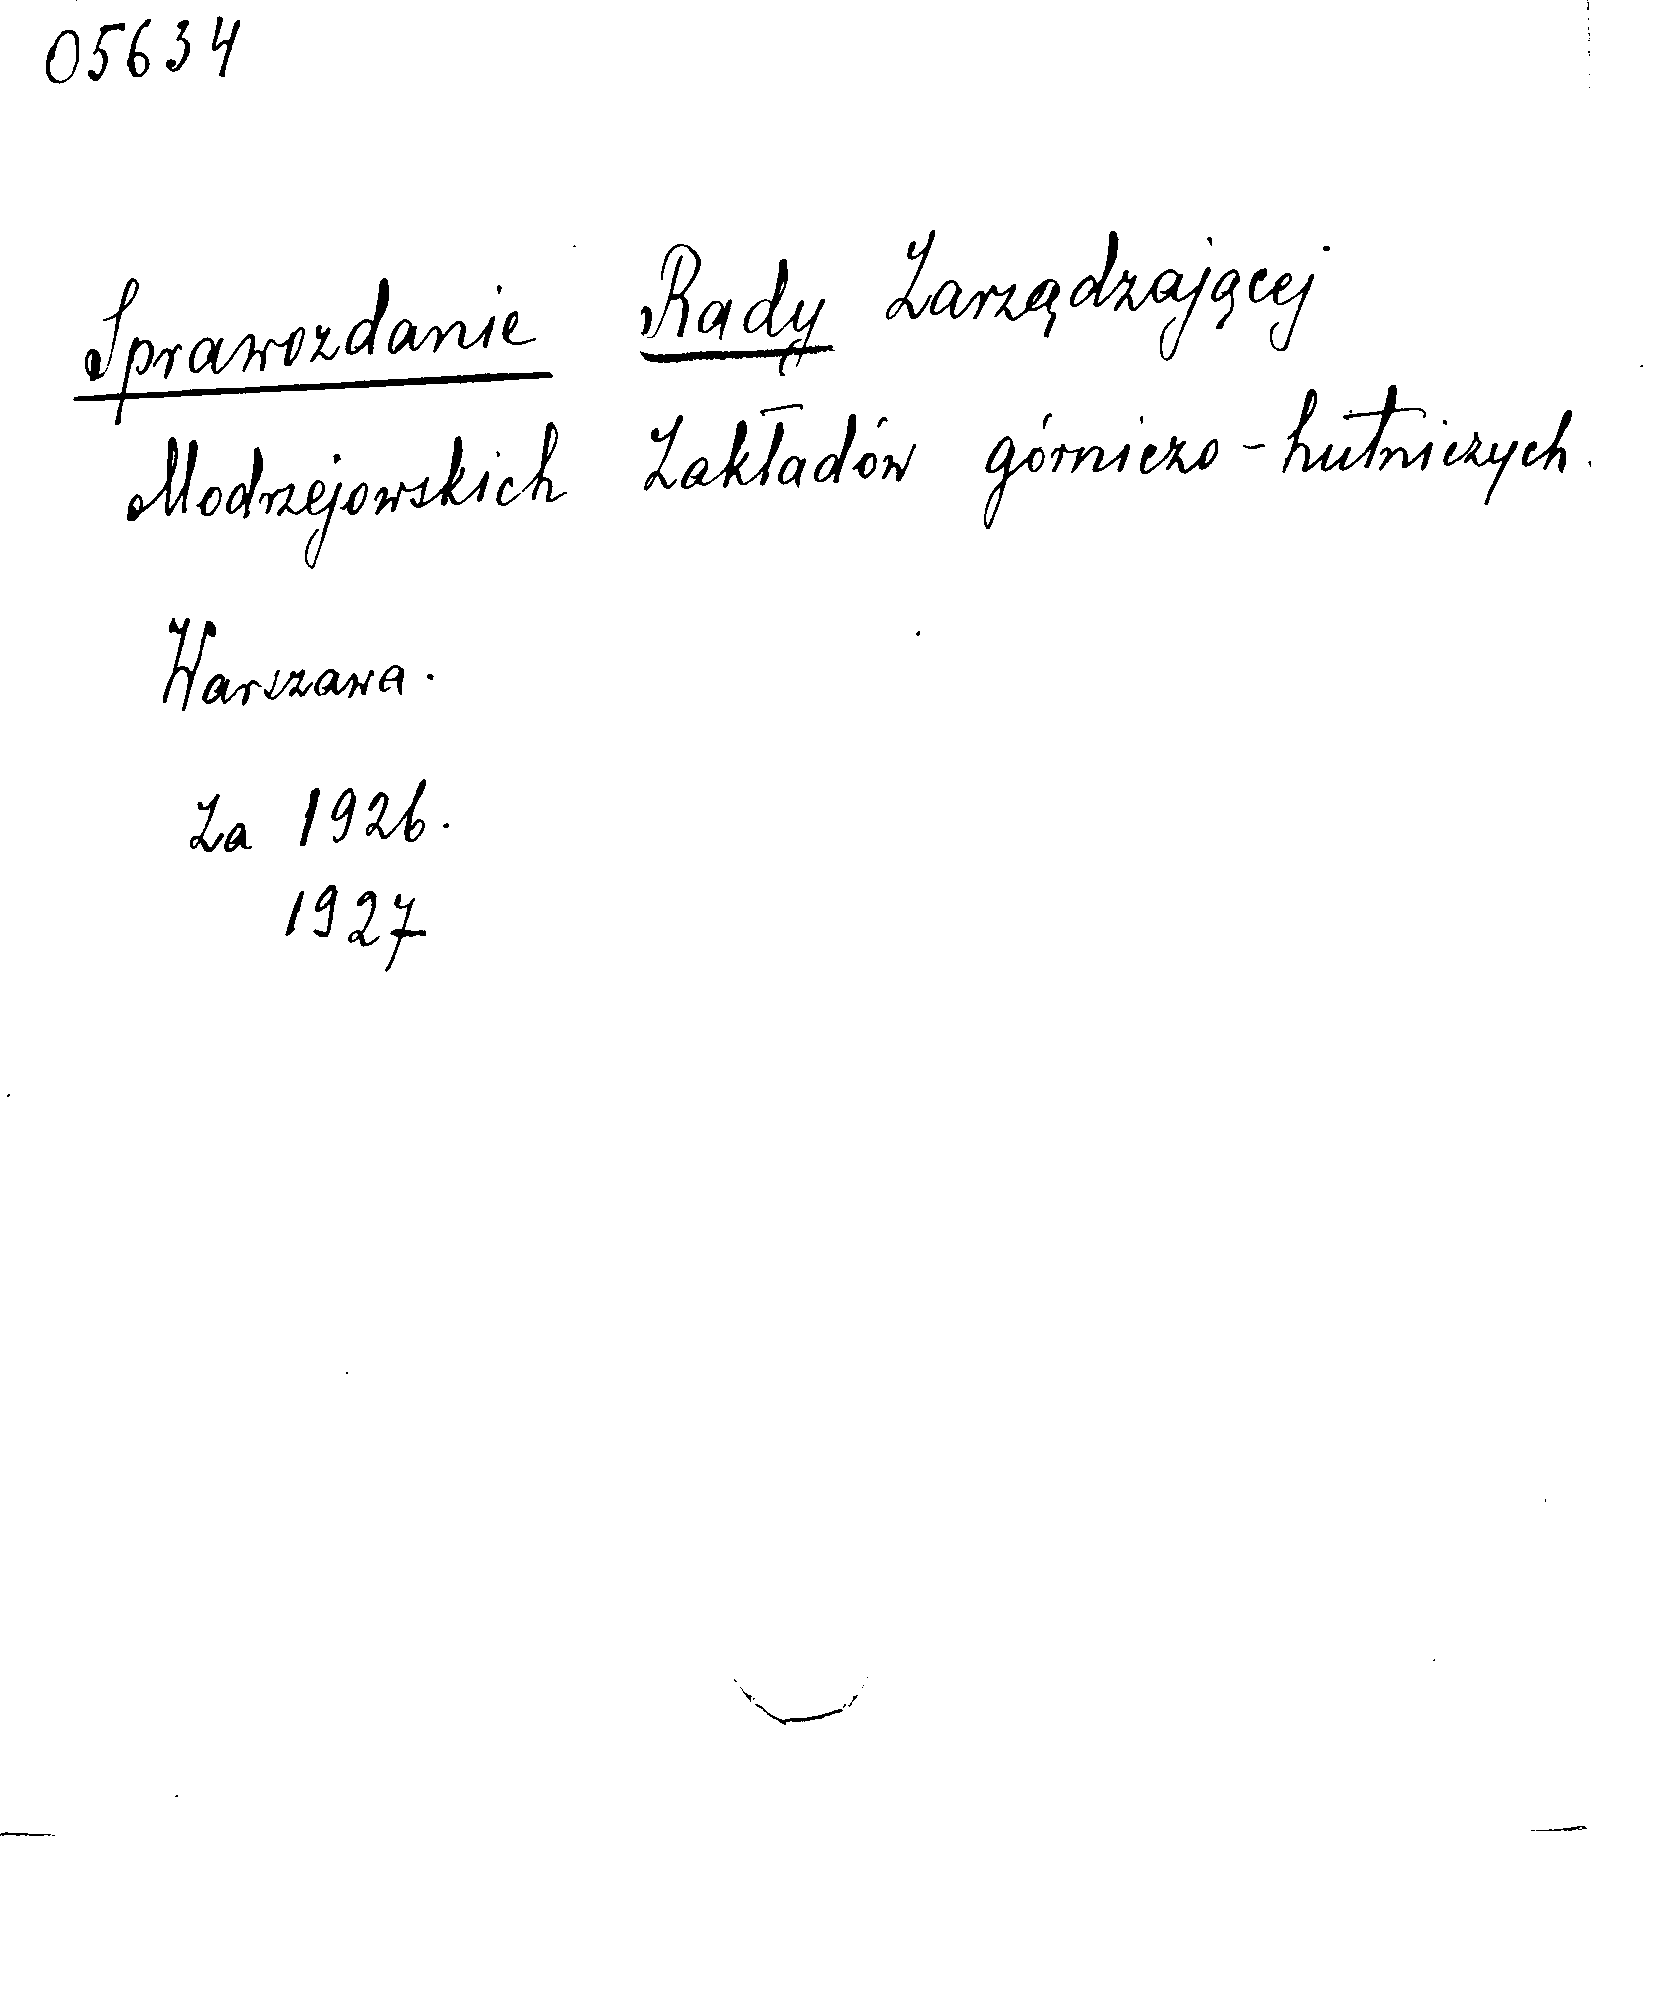 05634
Sprawozdanie Rady Zarządzającej
Modrzejowskich Zakładów górniczo-hutniczych.
Warszawa.
Za 1926.
1927